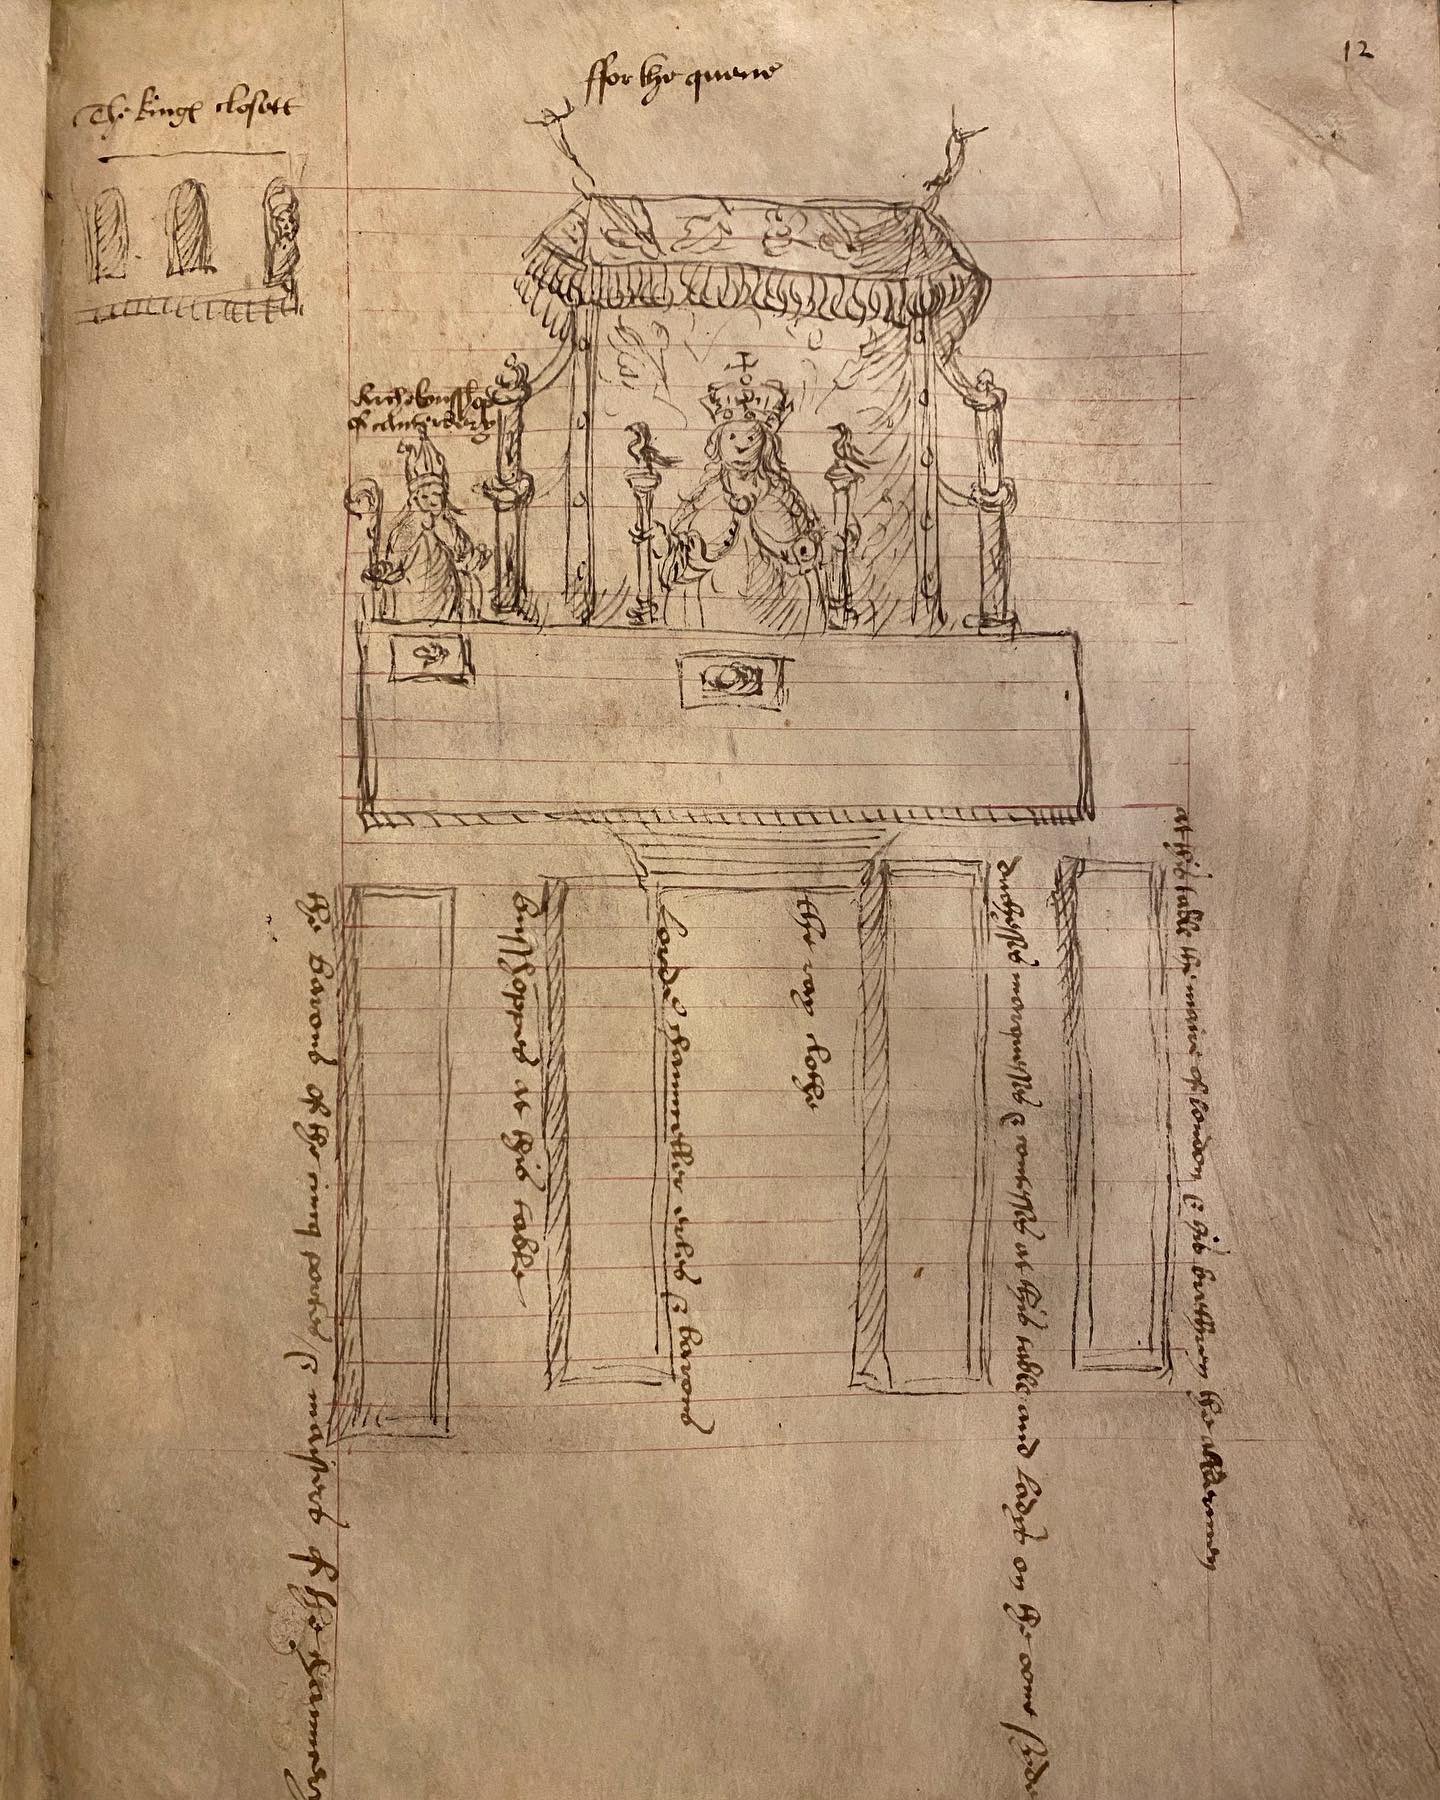 12
ffor the quene
The kinges closett
Archebousshop
of Canterbery
the barons of the cinq portes & maisters of the chauncery
busshoppes at this table
lorde chaunceller erles & barons
the way vothe
duchesses marquesses & contesses at this table and ladyes on the oone side
at this table the maire of london & his brethren the aldermen